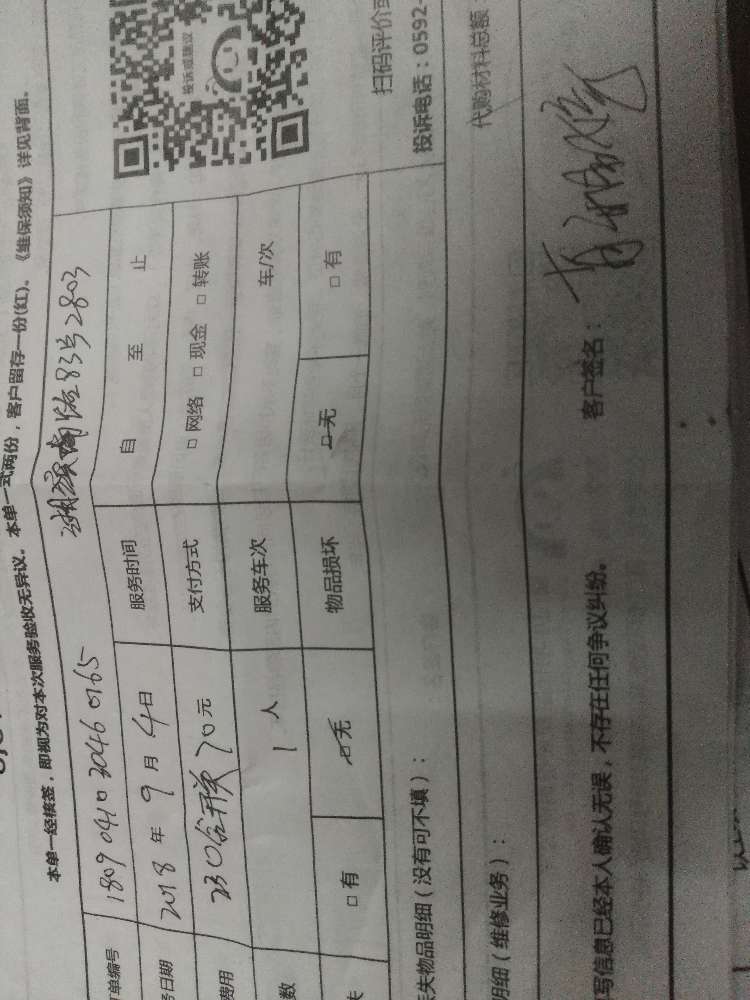 本单一经核签，即视为对本次服务验收无异议。本单一式两份，客户留存一份(红)。《维保须知》详见背面。
单编号 1809 0410 3046 0165 83号2803
日期 2018 年 9 月 4 日 服务时间 自 至 止
费用 230合并单 70元 支付方式 □ 网络 □ 现金 □ 转账
数 1 人 服务车次 车/次
失 □ 有 □ 无 物品损坏 □ 无 □ 有
投诉或建议
扫码评价或
投诉电话：0592-
失物品明细（没有可不填）：
明细（维修业务）： 代购材料总额
写信息已经本人确认无误，不存在任何争议纠纷。 客户签名：